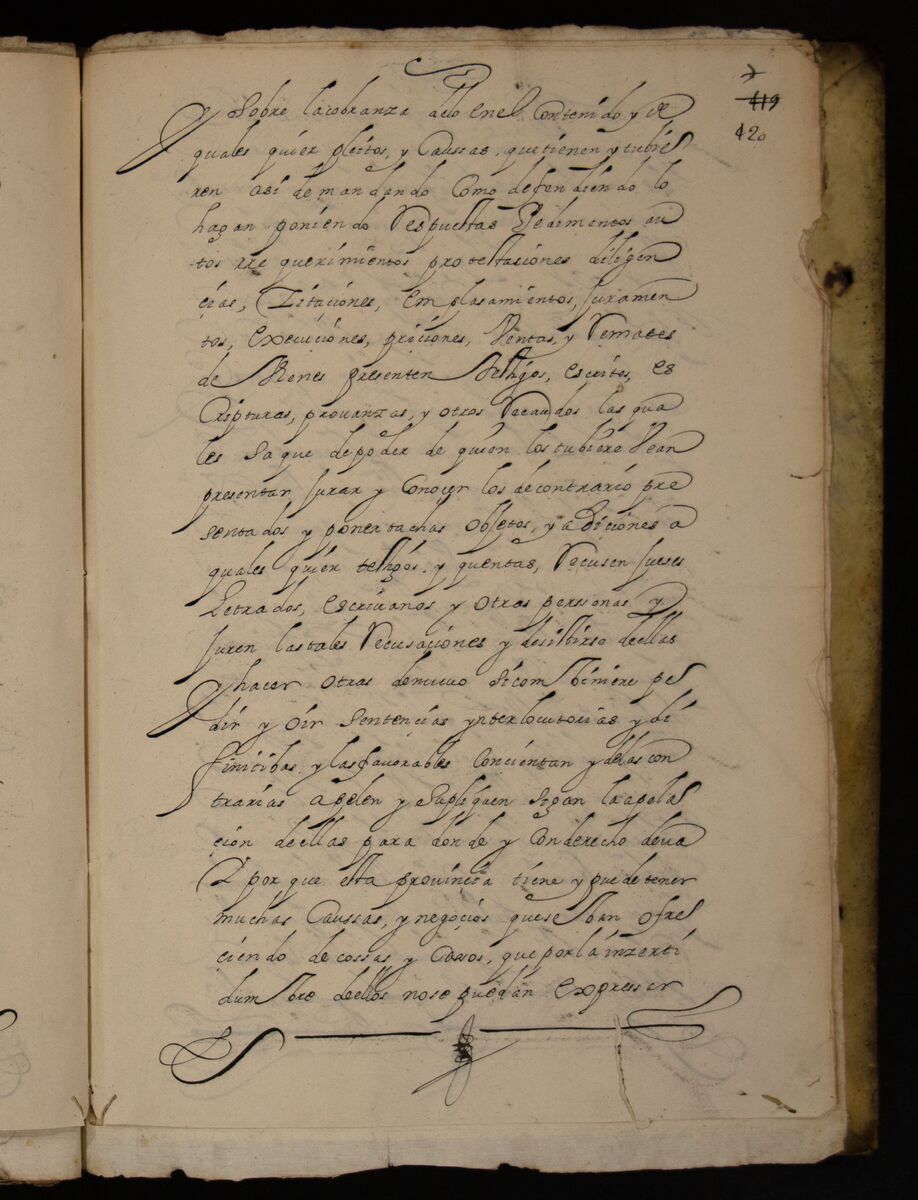 419
420
y sobre la cobranza dello en el contenido y de
quales quier pleitos, y Caussas, que tienen y tubie
ren asi demandando Como defendiendo lo
hagan poniendo Respuestas Pedimentos au
tos rrequerimientos protestaciones diligen
cias, Zitaciones, emplasamientos, Juramen
tos, execuciones, priciones, Ventas, y Remates
de Bienes presenten testigos, escritos, es
Cripturas, provanzas, y otros Recaudos las qua
les saque de poder de quien los tubiere Vean
presentar Jurar y Conocer los de contrario pre
sentados y poner tachas objetos, y adiciones a
quales quier testigos, y quentas, Recusen Jueses
Letrados, escrivanos y otras personas y
Juren las tales Recusaciones y desistirse de ellas
y hacer otras de nuevo si combiniere pe
dir y oir sentencias ynterlocutorias y di
finitibas y las favorables Concientan y de las con
trarias apelen y supliquen sigan la apela
cion de ellas para donde y Con derecho deva
Y por que esta provincia tiene y puede tener
muchas Caussas, y negocios que se ban ofre
ciendo de cossas y Casos, que por la inzerti
dumbre dellos no se puedan expressar